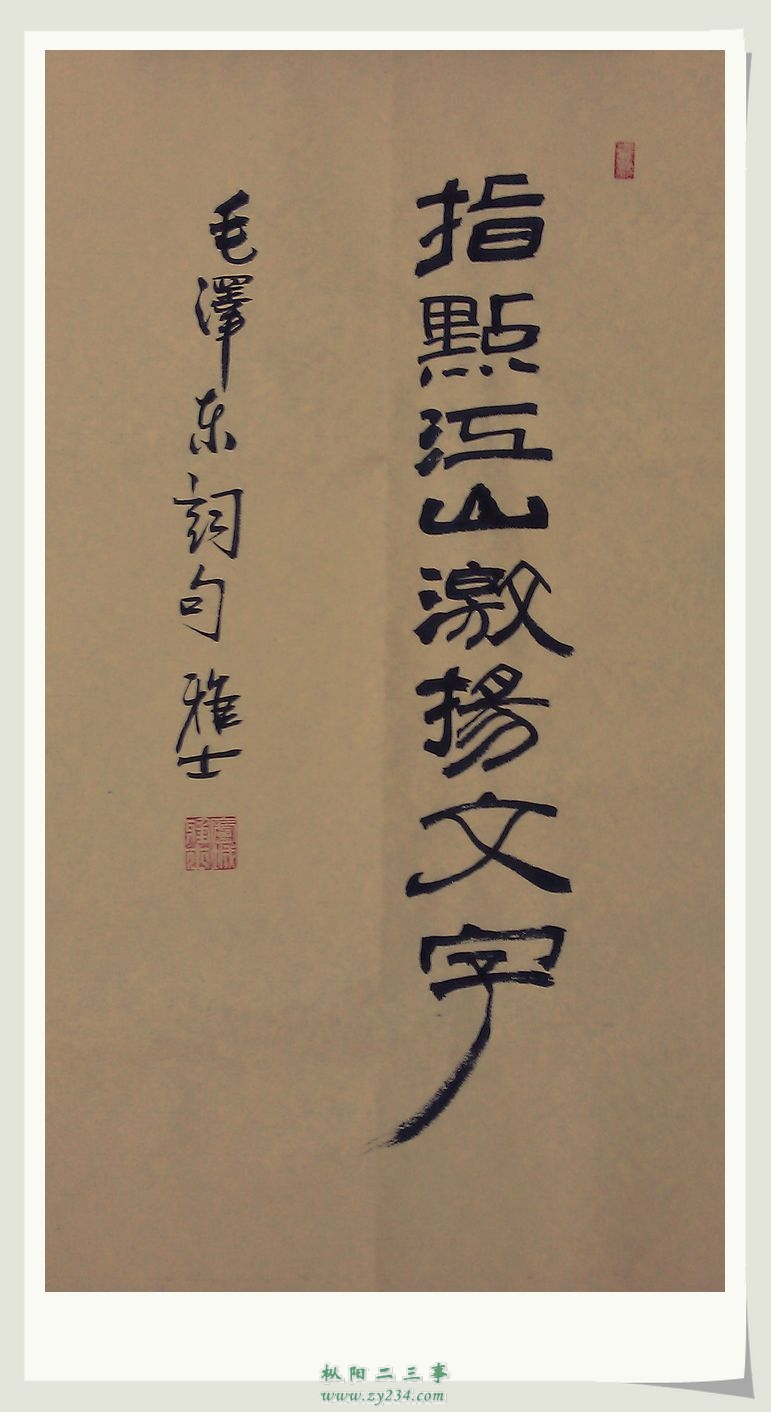 指點江山激揚文字
毛澤东詞句 雅士
枞阳二三事
www.zy234.com